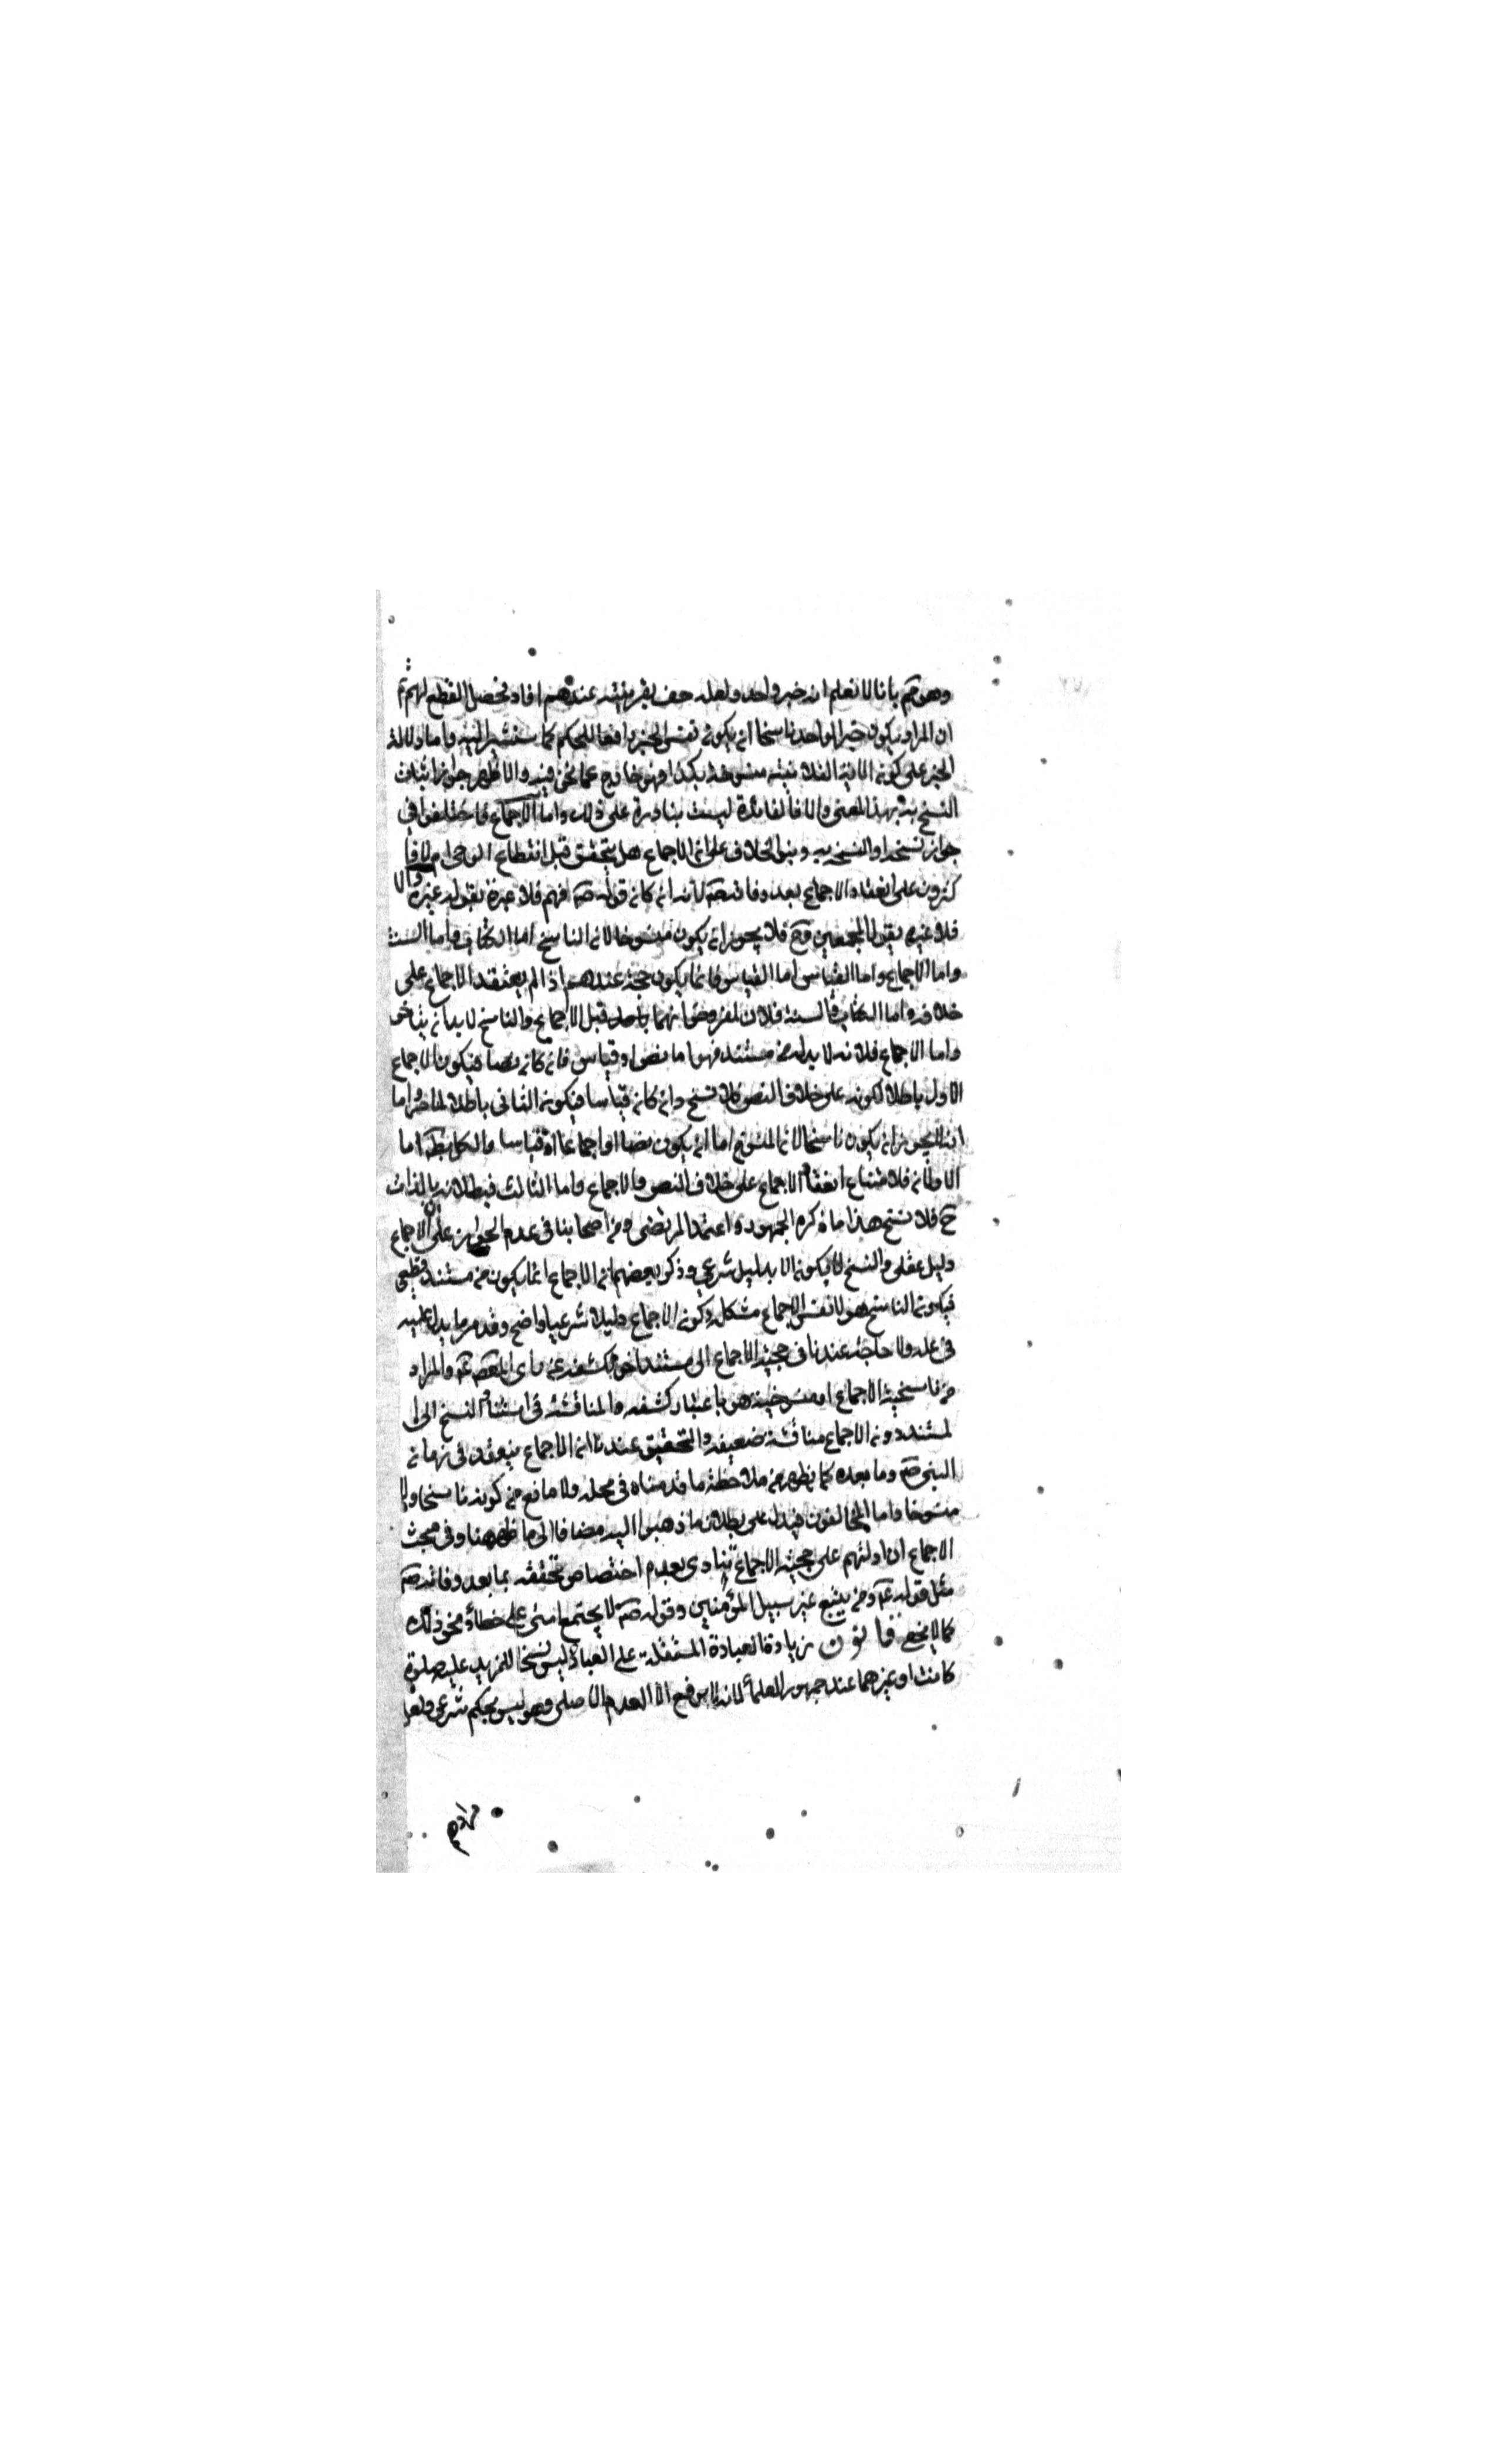 وهو كم بانا لا نعلم انه خبر واحد ولعله حف بقرينة عندهم افاد فحصل القطع لهم ثم
ان المراد بكون خبر الواحد ناسخا ان يكون نفس الخبر رافعا للحكم كما ستشير اليه واما دلالة
الخبر على كون الاية الفلانية منسوخة بكذا فهو خارج عما نحن فيه والاظهر جواز اثبات
النسخ به بهذا المعنى والا فالفائدة ليست بنادرة على ذلك واما الاجماع فاختلفوا في
جواز نسخه او النسخ به وبنوا الخلاف على ان الاجماع هل يتحقق قبل انقطاع الوحى ام لا فا
كثرون على انعقاد الاجماع بعد وفاته صم لانه ان كان قوله صم فهم فلا عبرة بقول غيره والا
فلا عبرة بقول المجمعين وح فلا يجوز ان يكون منسوخا لان الناسخ اما الكتاب واما السنة
واما الاجماع واما القياس اما القياس فانما يكون حجة عندهم اذا لم يعتقد الاجماع على
خلافه واما الكتاب والسنة فلان المفروض انهما قبل الاجماع والناسخ لا بد ان يتاخر
واما الاجماع فلانه لا بد له من مستند فهو اما نص او قياس فان كان نصا فيكون الاجماع
الاول باطلا لكونه على خلاف النص فلا نسخ وان كان قياسا فيكون الثانى باطلا لما مر واما
انه لا يجوز ان يكون ناسخا لان المنسوخ اما ان يكون نصا او اجماعا او قياسا والكل بط اما
الاولان فلامتناع انعقاد الاجماع على خلاف النص والاجماع واما الثالث فبطلانه بالذات
ح فلا نسخ هذا ما ذكره الجمهور واعتمد المرتضى ومن اصحابنا في عدم الجواز على ان الاجماع
دليل عقلى والنسخ لا يكون الا بدليل شرعي وذكر بعضهم ان الاجماع انما يكون من مستند قطعى
فيكون الناسخ هو لا نفس الاجماع مشكل وكون الاجماع دليلا شرعيا واضح وقد مر ما يدل عليه
فى محله ولا حاجة عندنا فى حجية الاجماع الى مستند اخر لكشفه عن راى المعصوم عم والمراد
من ناسخية الاجماع او منسوخيته هو باعتبار كشفه والمناقشة فى استناد النسخ الى ا
لمستند دون الاجماع مناقشة ضعيفة والتحقيق عندنا ان الاجماع ينعقد فى زمان
النبى صم وما بعده كما يظهر من ملاحظة ما قدمناه فى محله ولا مانع من كونه ناسخا ولا
منسوخا واما المخالفون فيدل على بطلان ما ذهبوا اليه مضافا الى ما ظهر هنا وفى مبحث
الاجماع ان ادلتهم على حجية الاجماع تنادى بعدم اختصاص تحققه بما بعد وفاته صم
مثل قوله عم ومن يتبع غير سبيل المؤمنين وقوله صم لا يجتمع امتى على خطأ ونحو ذلك
كما لا يخفى قانون زيادة العبادة المستقلة على العبادة ليس نسخا للمزيد عليه صلوة
كانت او غيرهما عند جمهور العلمأ لانه لا يرفع الا العدم الاصلى وهو ليس بحكم شرعى ونقل